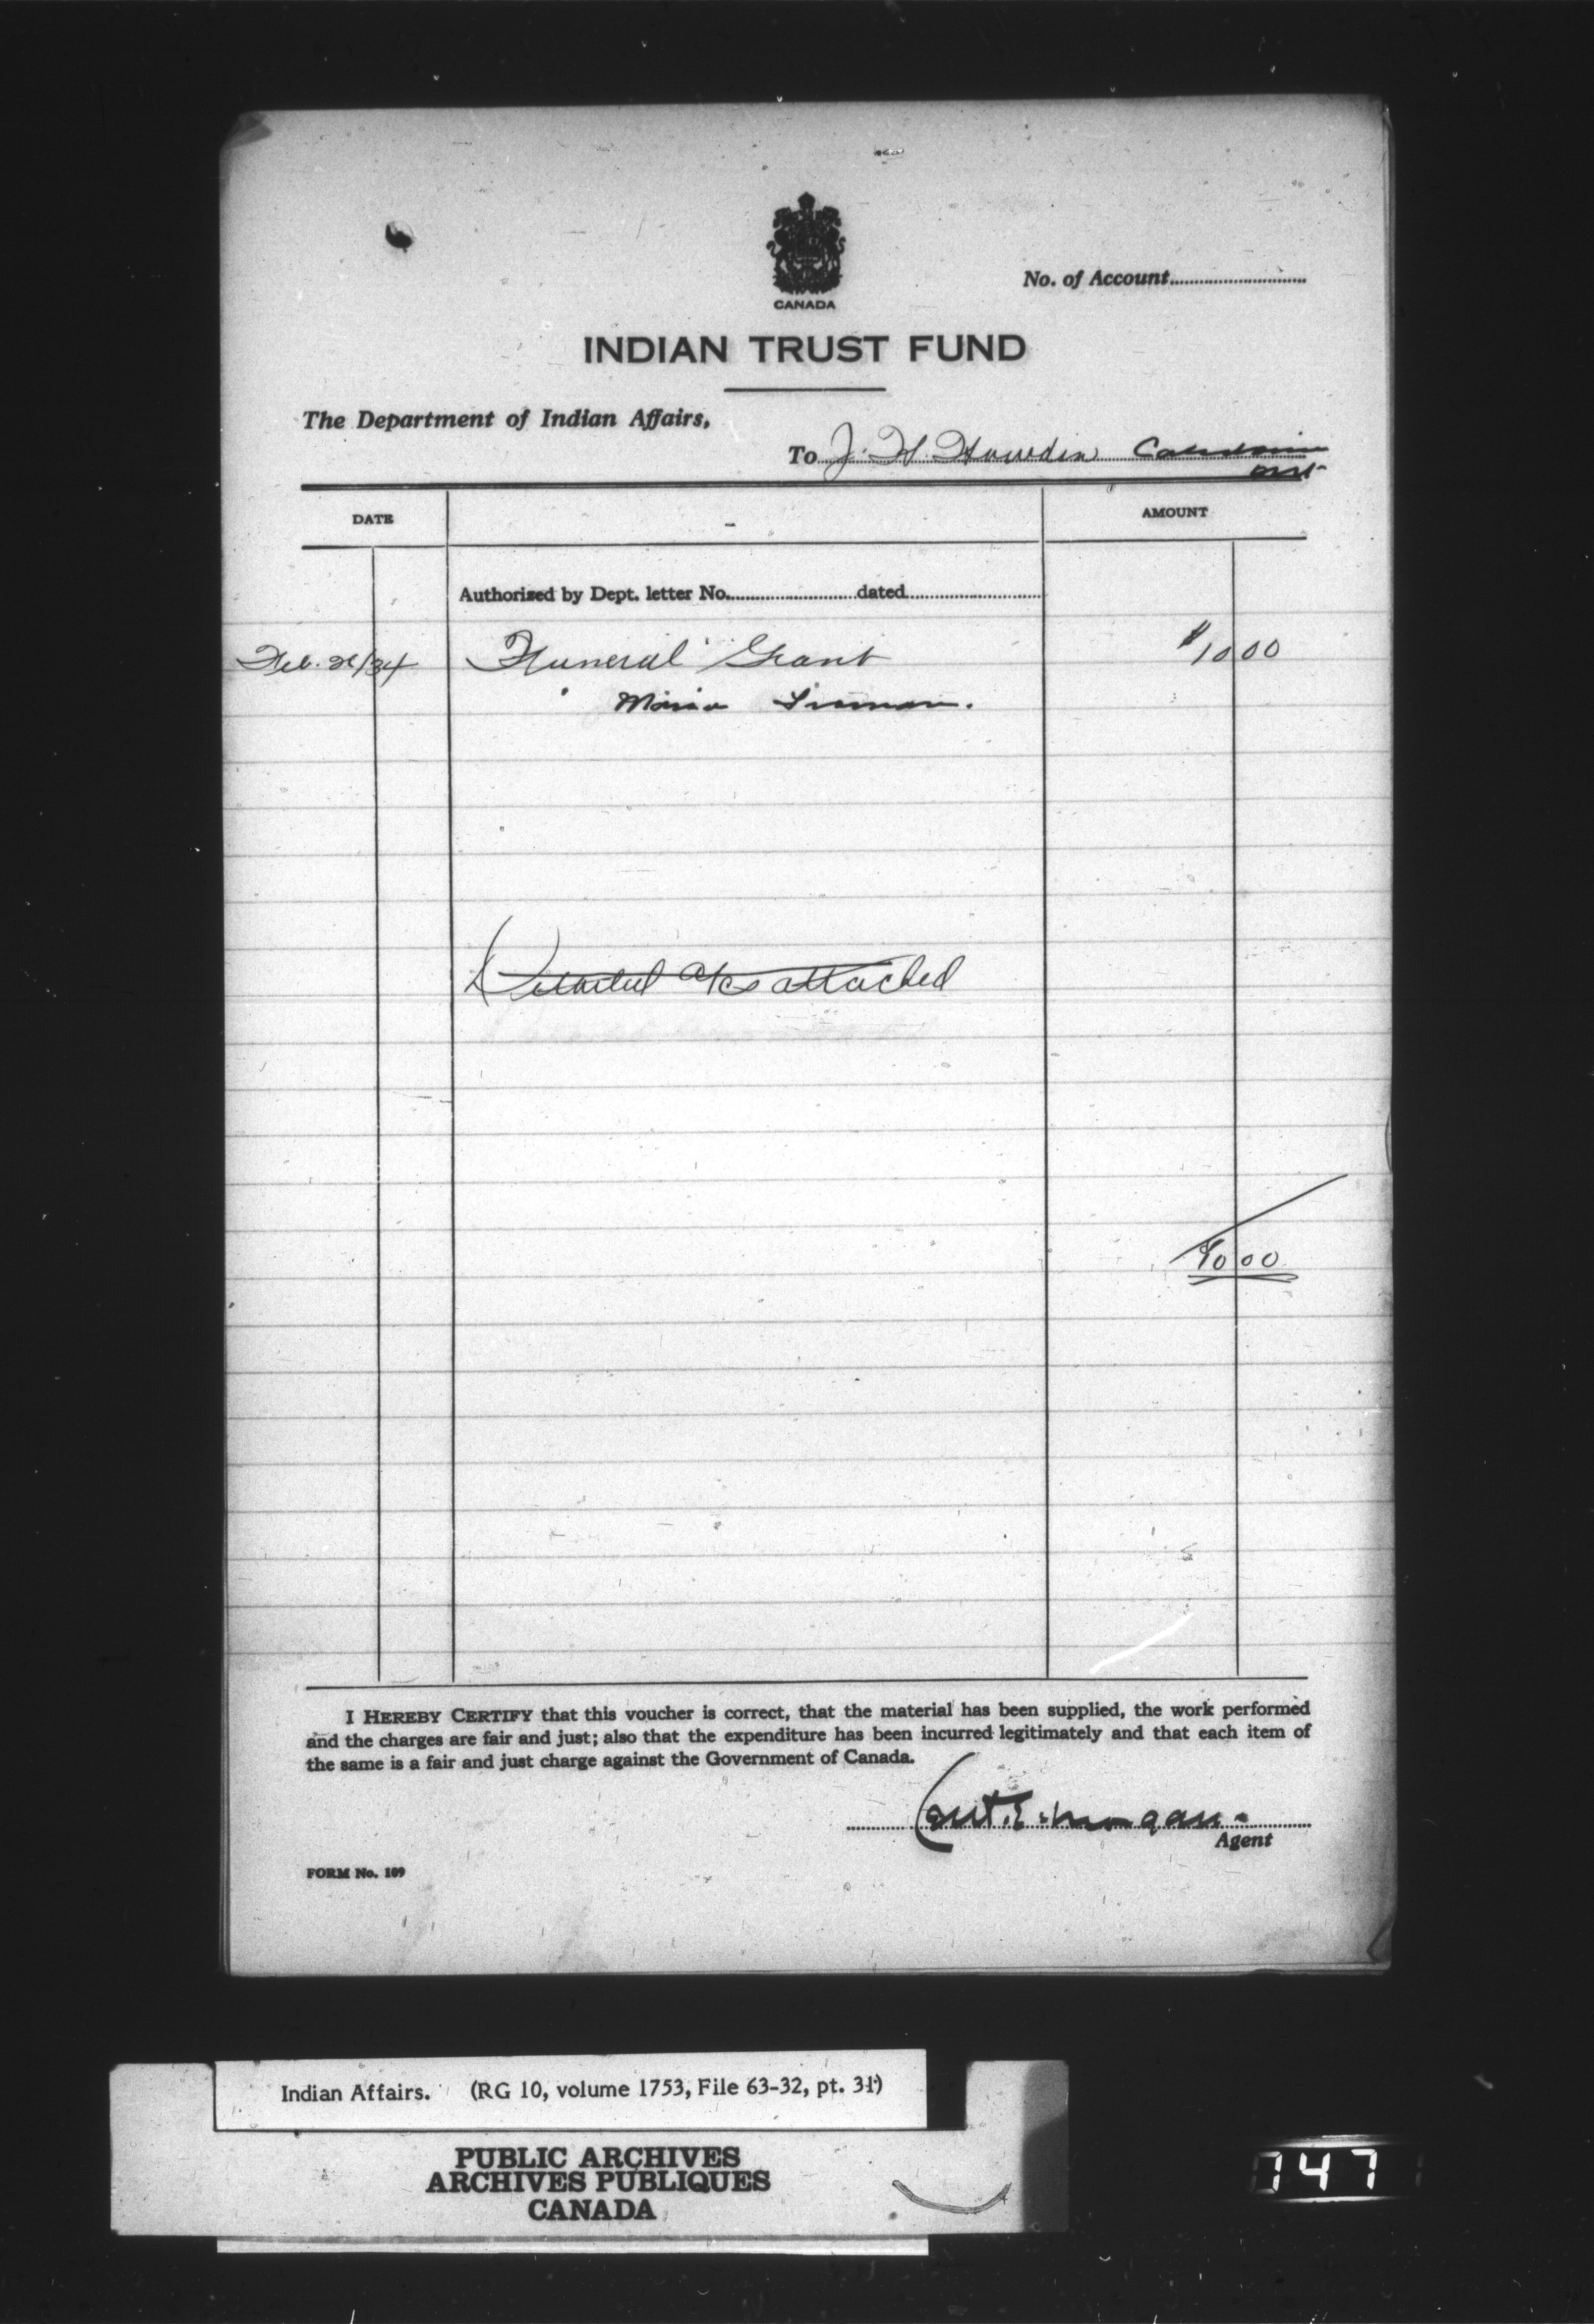 CANADA
No. of Account
INDIAN TRUST FUND
The Department of Indian Affairs,
To J. H. Howden Caledonia
Ont.
DATE
AMOUNT
Authorized by Dept. letter No. dated
Feb. /34 Funeral Grant $10 00
Detailed a/cs attached
10 00
I HEREBY CERTIFY that this voucher is correct, that the material has been supplied, the work performed
and the charges are fair and just; also that the expenditure has been incurred legitimately and that each item of
the same is a fair and just charge against the Government of Canada.
E. Morgan.
Agent
FORM No. 109
Indian Affairs. (RG 10, volume 1753, File 63-32, pt. 31)
PUBLIC ARCHIVES
ARCHIVES PUBLIQUES
CANADA
747